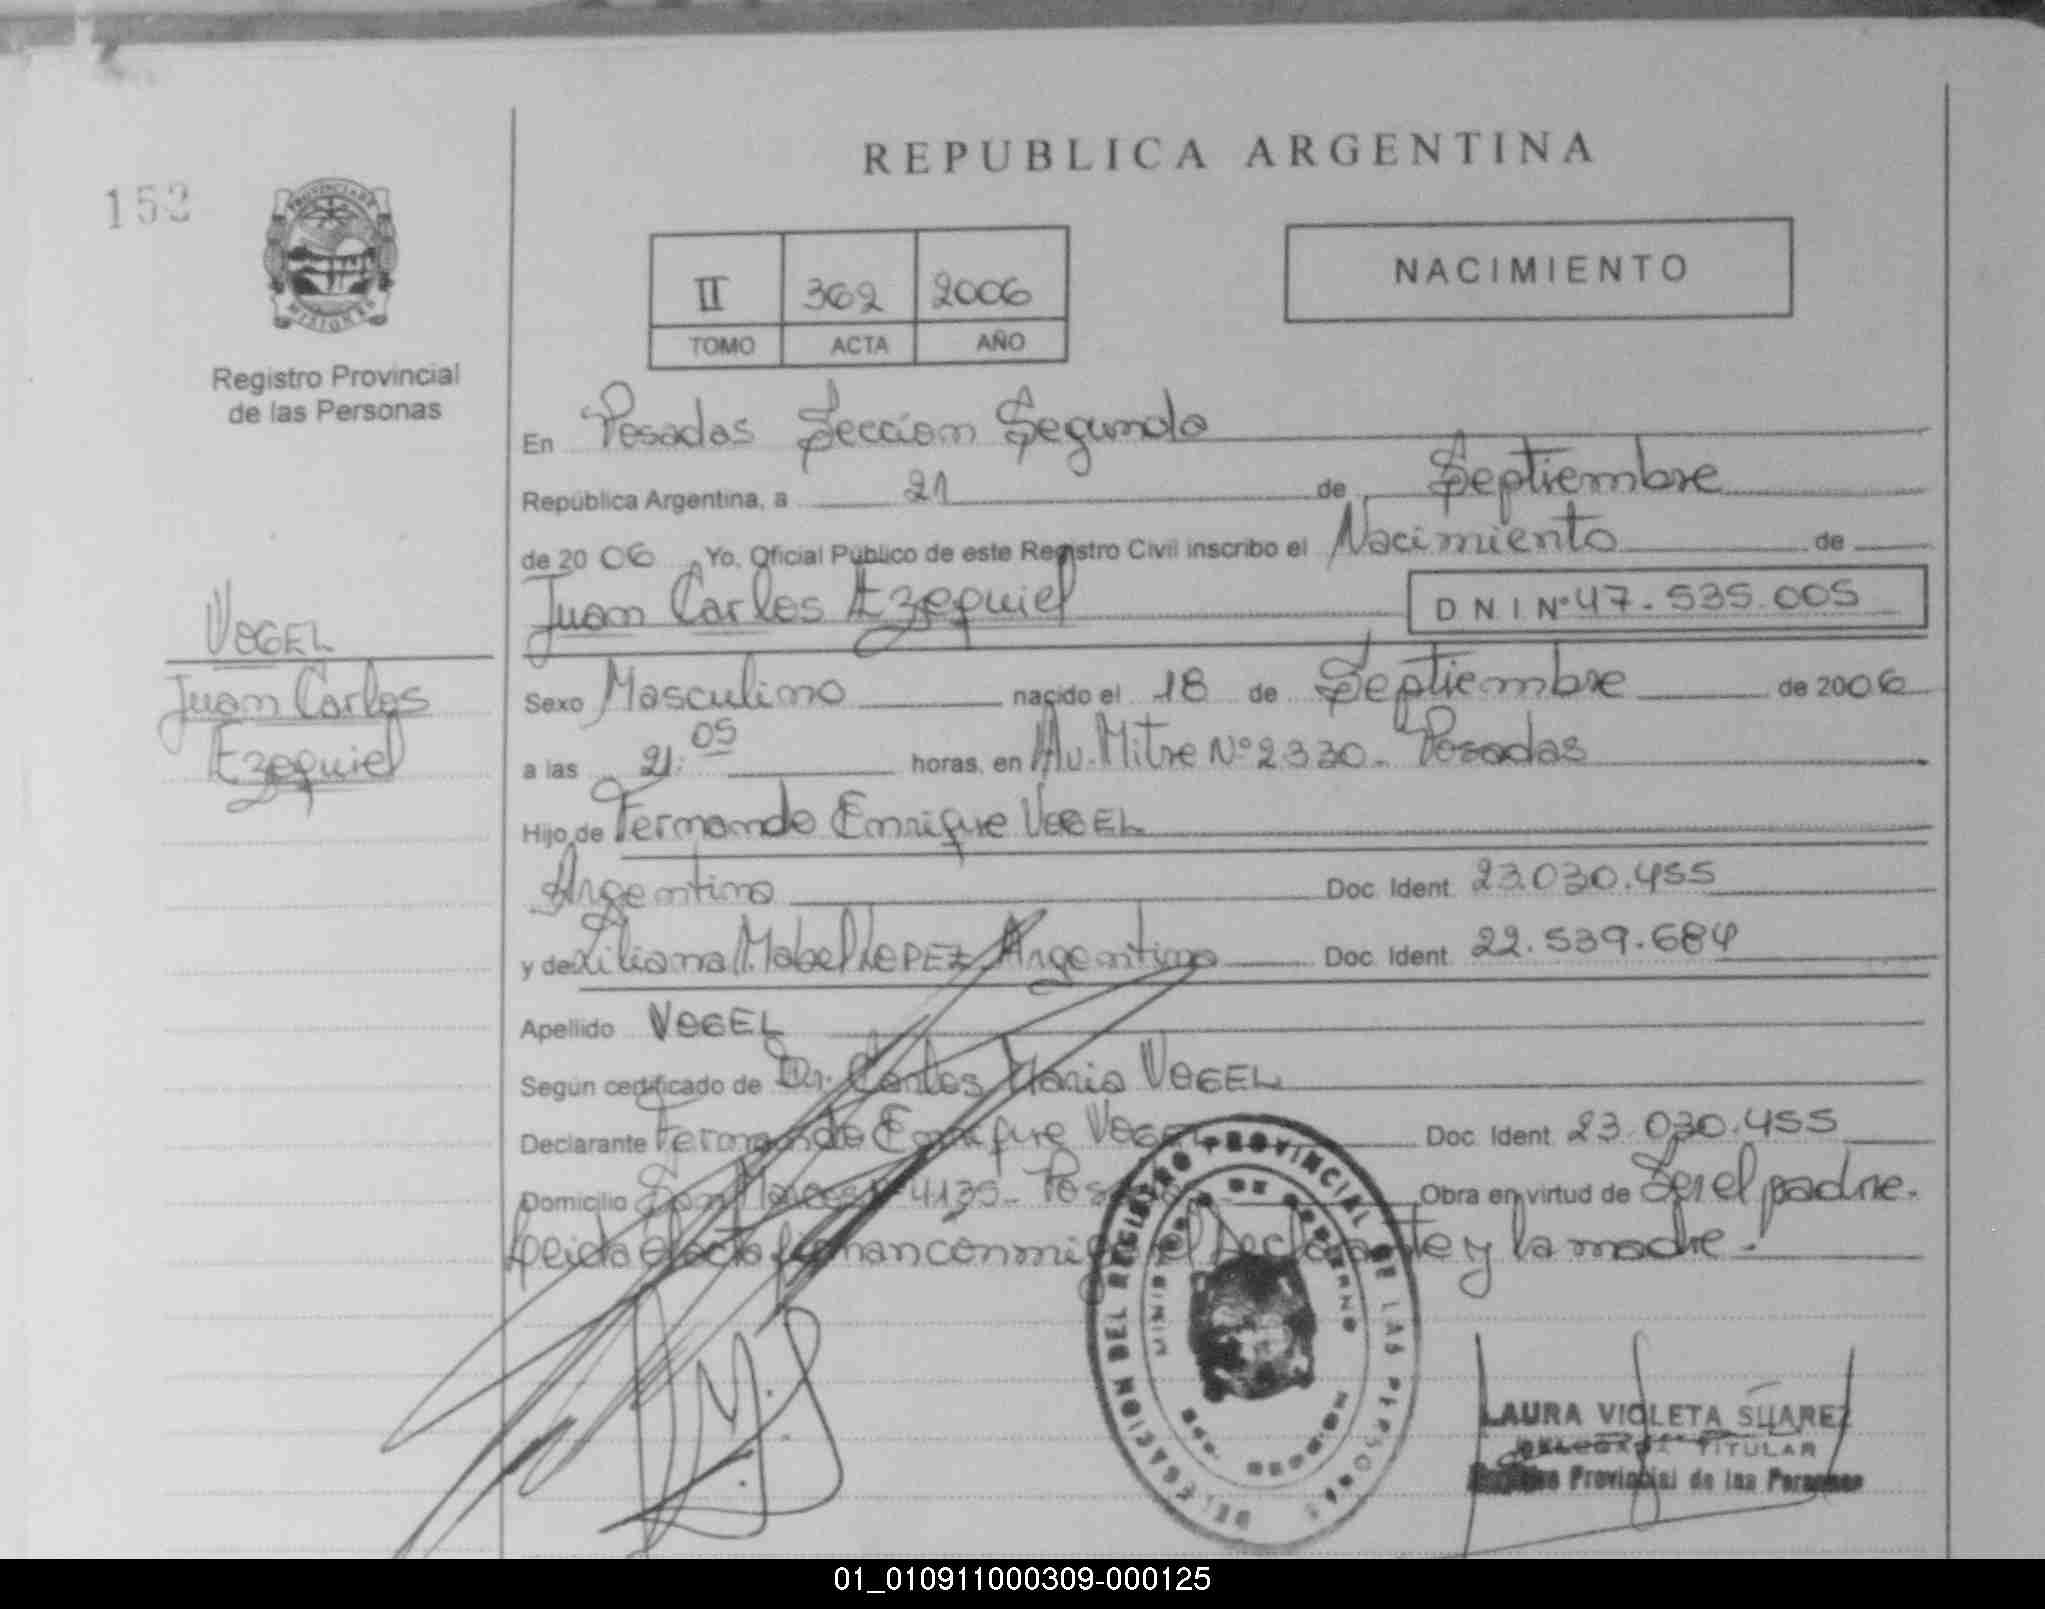 REPUBLICA ARGENTINA
152
PROVINCIA DE
MISIONES
Registro Provincial
de las Personas
II 362 2006
TOMO ACTA AÑO
NACIMIENTO
En Posadas Sección Segunda
República Argentina, a 21 de Septiembre
de 2006 Yo, Oficial Público de este Registro Civil inscribo el Nacimiento de
Juan Carlos Ezequiel D.N.I Nº 47.535.005
VOGEL
Juan Carlos
Ezequiel
Sexo Masculino nacido el 18 de Septiembre de 2006
a las 21:05 horas, en Av. Mitre Nº 2330- Posadas
Hijo de Fernando Enrique VOGEL
Argentino Doc. Ident. 23.030.455
y de Liliana Mabel LOPEZ Argentina Doc. Ident. 22.539.684
Apellido VOGEL
Según certificado de Dr. Carlos Maria VOGEL
Declarante Fernando Enrique VOGEL Doc. Ident. 23.030.455
Domicilio San 4135- Obra en virtud de Ser el padre.
Leida el acta firman conmigo el Declarante y la madre.
DELEGACION DEL REGISTRO PROVINCIAL DE LAS PERSONAS
MINISTERIO DE GOBIERNO
LAURA VIOLETA SUAREZ
DELEGADA TITULAR
Registro Provincial de las Personas
01_010911000309-000125